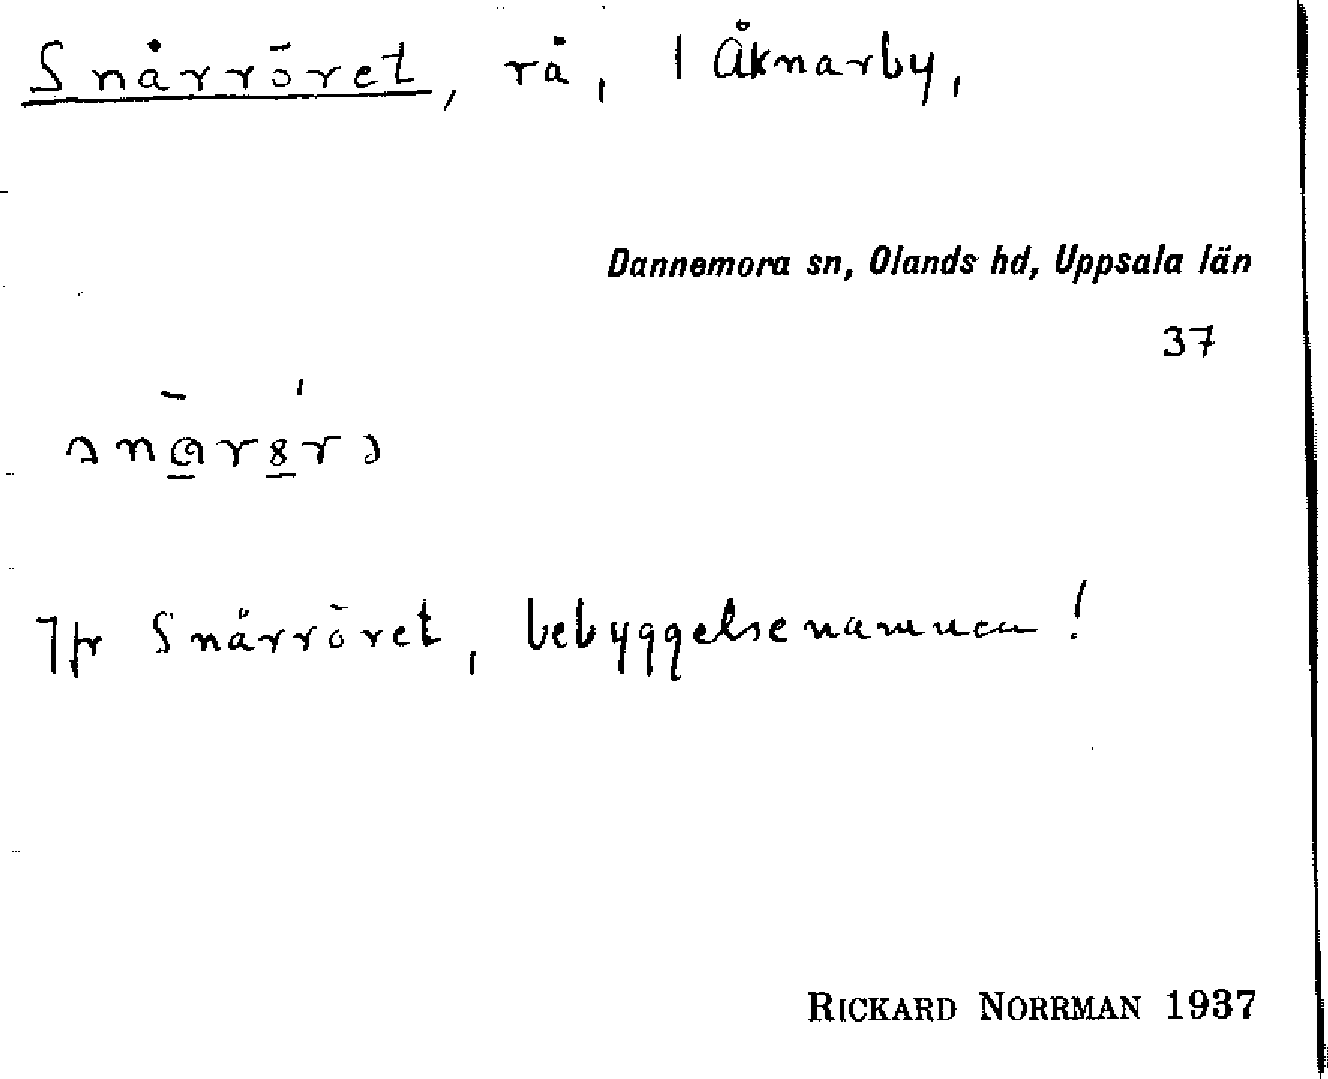 Snårröret, rå, 1 Åknarby,
Dannemora sn, Olands hd, Uppsala län
37
Jfr Snårröret, bebyggelsenamnen!
RICKARD NORRMAN 1937